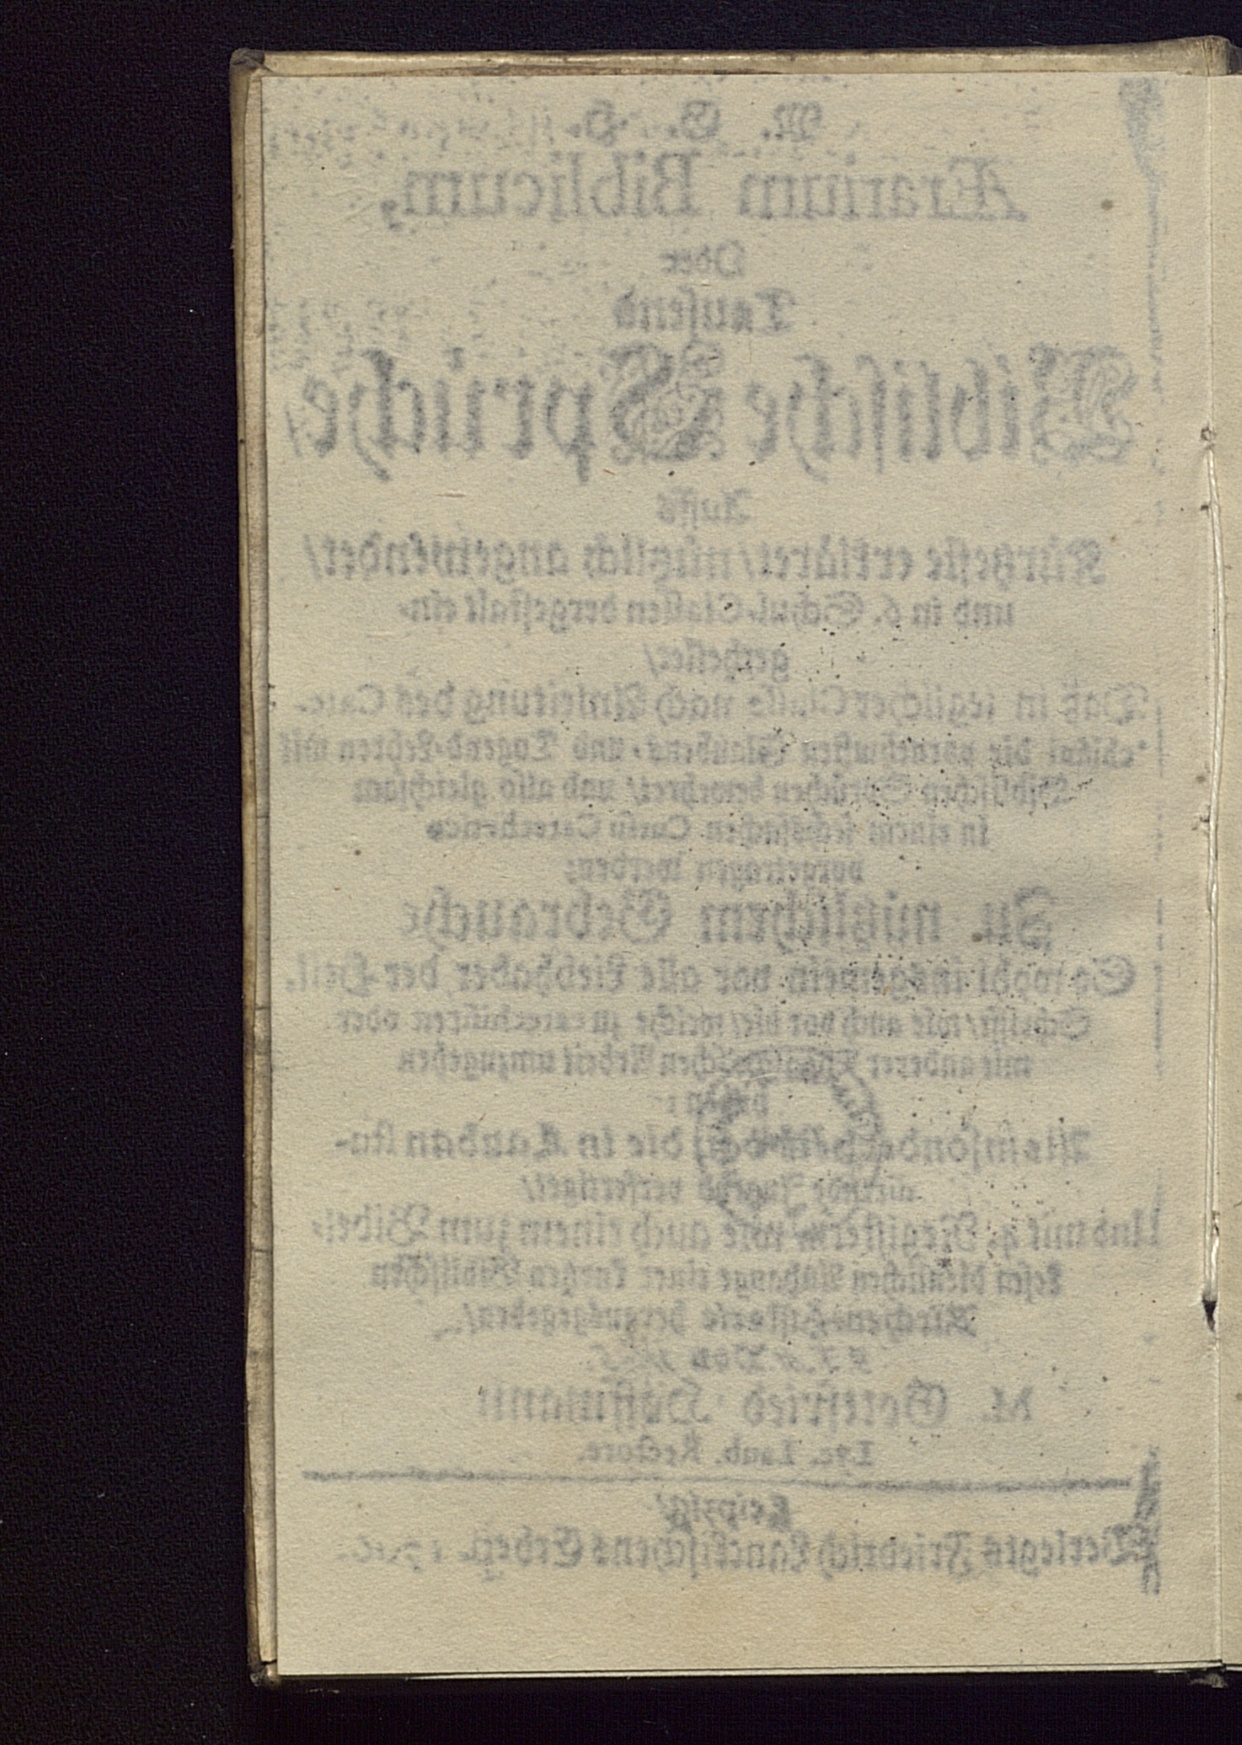 M. G. H.
Ærarium Biblicum,
Oder
Tausend
Biblische Sprüche/
Auffs
Kürtzeste erkläret/ nützlich angewendet/
und in 6. Schul-Classen dergestalt ein-
getheilet/
Daß in ieglicher Classe nach Anleitung des Cate-
chismi die vornehmsten Glaubens- und Tugend-Lehren mit
Biblischen Sprüchen bewehret/ und also gleichsam
in einem sechsfachen Cursu Catechetico
vorgetragen werden;
Zu nützlichem Gebrauche
So wohl insgemein vor alle Liebhaber der Heil.
Schrifft/ wie auch vor die/ welche zu catechisiren oder
mit anderer Arbeit umzugehen
haben:
Als insonderheit vor die in Lauban stu-
dirende Jugend verfertiget/
Und mit 4. Registern wie auch einem zum Bibel-
Lesen dienlichen Anhange einer kurtzen Biblischen
Kirchen-Historie herausgegeben/
Von
M. Gottfried Hoffmann
Lyc. Laub. Rectore.
Leipzig/
Verlegts Friedrich Lanckischens Erben